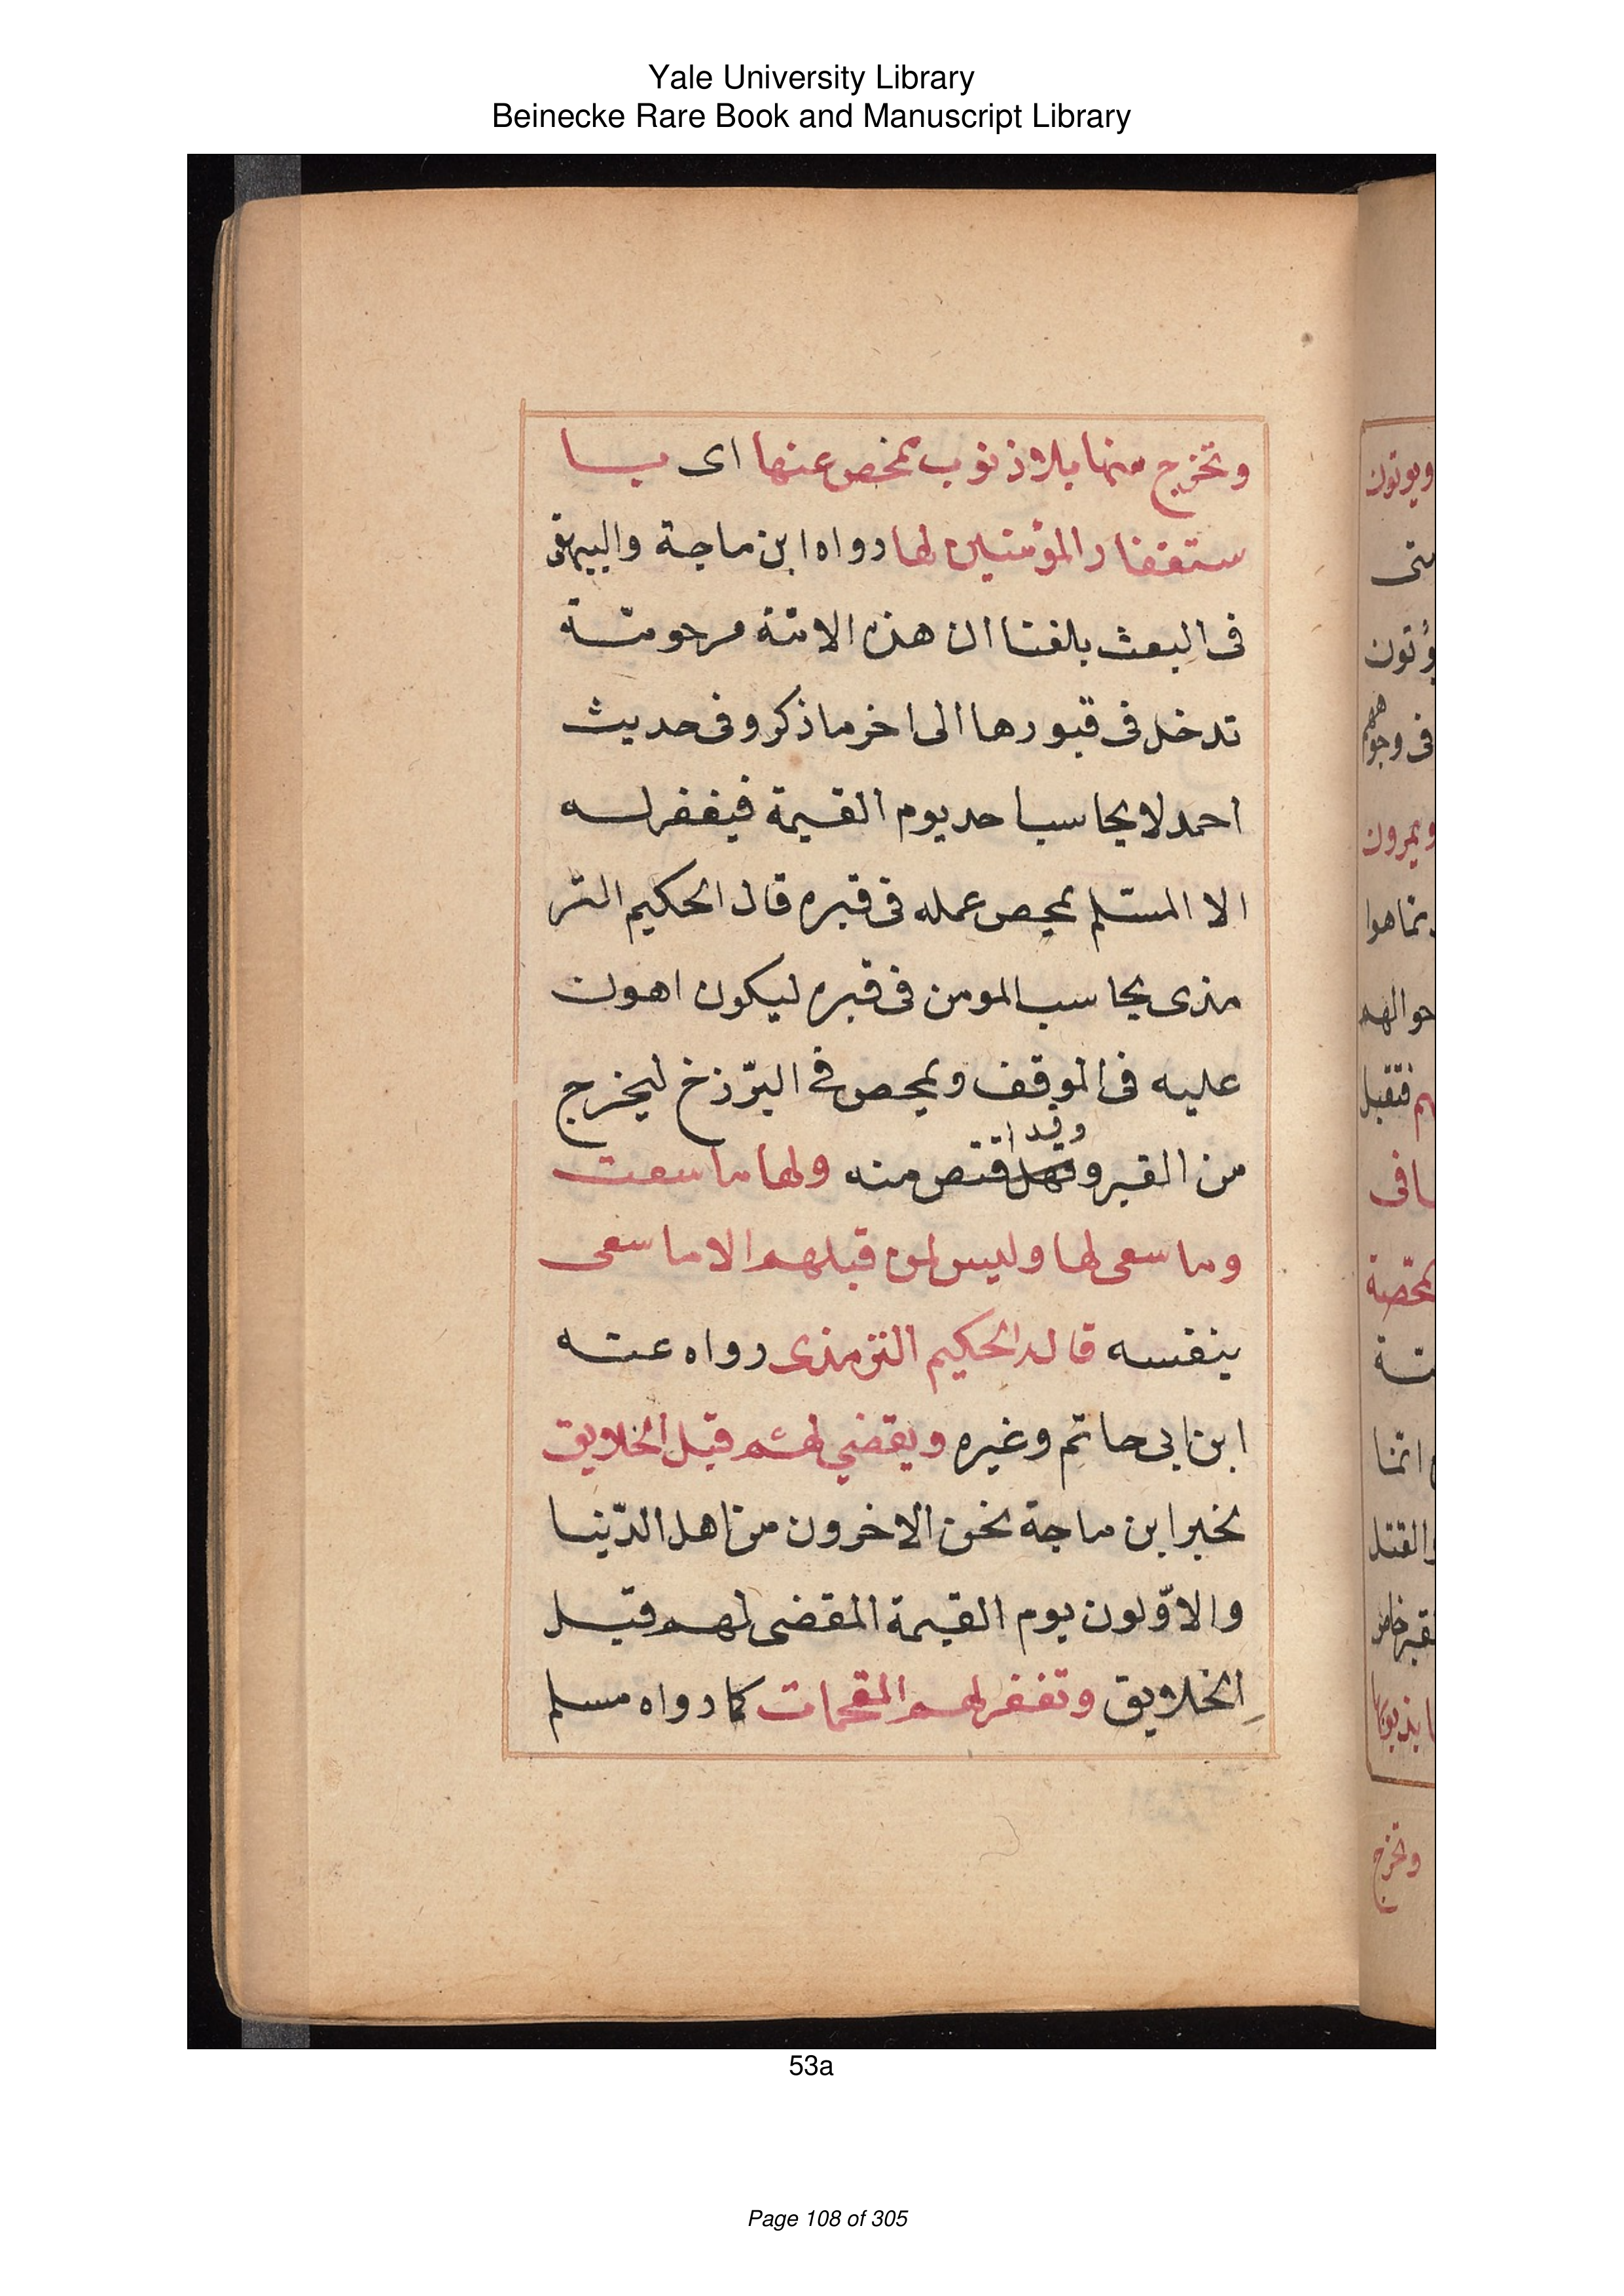 Yale University Library
Beinecke Rare Book and Manuscript Library
وتخرج منها بلا ذنوب تمحص عنها اى با
ستغفار المؤمنين لها رواه ابن ماجة والبيهقى
فى البعث بلغنا ان هذه الامة مرحومة
تدخل فى قبورها الى اخر ما ذكر وفى حديث
احمد لا يحاسب احد يوم القيمة فيغفر له
الا المسلم يمحص عمله فى قبره قال الحكيم التر
مذى يحاسب المومن فى قبره ليكون اهون
عليه فى الموقف ويمحص فى البرّزخ ليخرج
وقد
من القبر و اقتص منه ولها ما سعت
وما سعى لها وليس لمن قبلهم الا ما سعى
بنفسه قاله الحكيم الترمذى رواه عنه
ابن ابى حاتم وغيره ويقضي لهم قبل الخلايق
بخبر ابن ماجة نحن الاخرون من اهل الدّنيا
والاوّلون يوم القيمة المقضى لهم قبل
الخلايق وتغفر لهم المقحمات كما رواه مسلم
ويوتون
يؤتون
فى وجوههم
ويمرون
فتقبل
والقتل
وتخرج
53a
Page 108 of 305